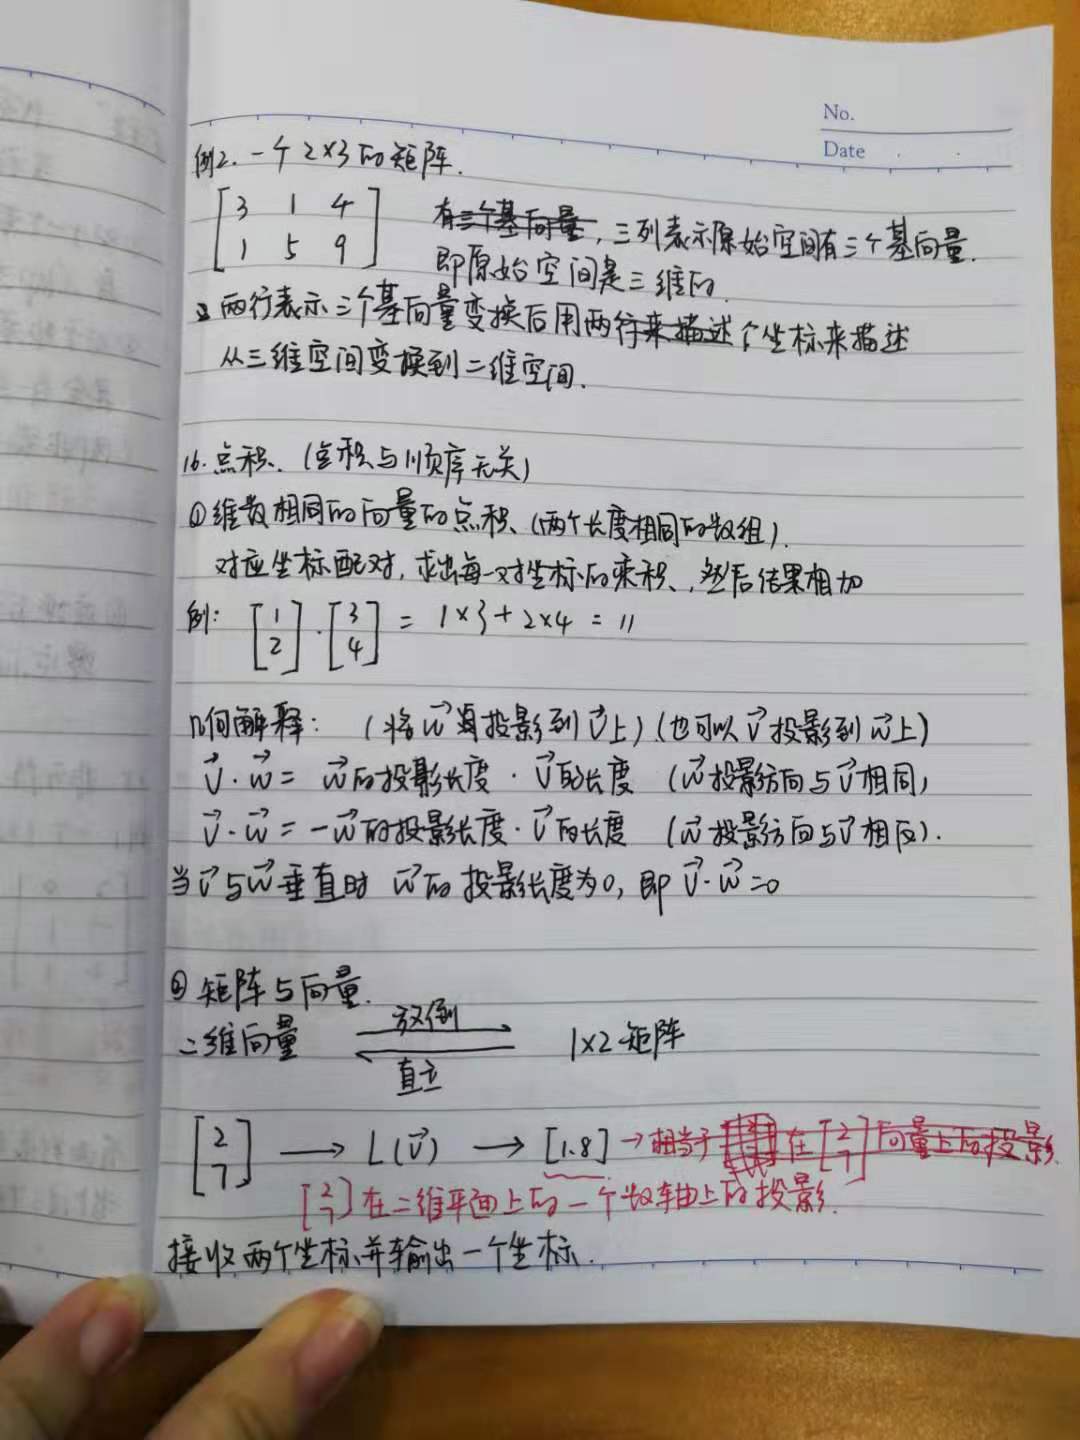 No.
Date
例2.一个2×3的矩阵.
[3 1 4
1 5 9]
有三个基向量,三列表示原始空间有三个基向量.
即原始空间是三维的.
两行表示三个基向量变换后用两行来描述个坐标来描述
从三维空间变换到二维空间.
16.点积.(点积与顺序无关)
①维数相同的向量的点积、(两个长度相同的数组).
对应坐标配对,求出每一对坐标的乘积,然后结果相加
例: [1 2]·[3 4] = 1×3+2×4 = 11
几何解释: (将w⃗投影到v⃗上)(也可以v⃗投影到w⃗上)
v⃗·w⃗ = w⃗的投影长度·v⃗的长度 (w⃗投影方向与v⃗相同)
v⃗·w⃗ = -w⃗的投影长度·v⃗的长度 (w⃗投影方向与v⃗相反).
当v⃗与w⃗垂直时 w⃗的投影长度为0,即v⃗·w⃗=0
②矩阵与向量.
二维向量 放倒 直立 1×2矩阵
[2 7] → L(v⃗) → [1.8] → 相当于 在[2 7]向量上的投影.
[2 7]在二维平面上的一个数轴上的投影.
接收两个坐标并输出一个坐标.